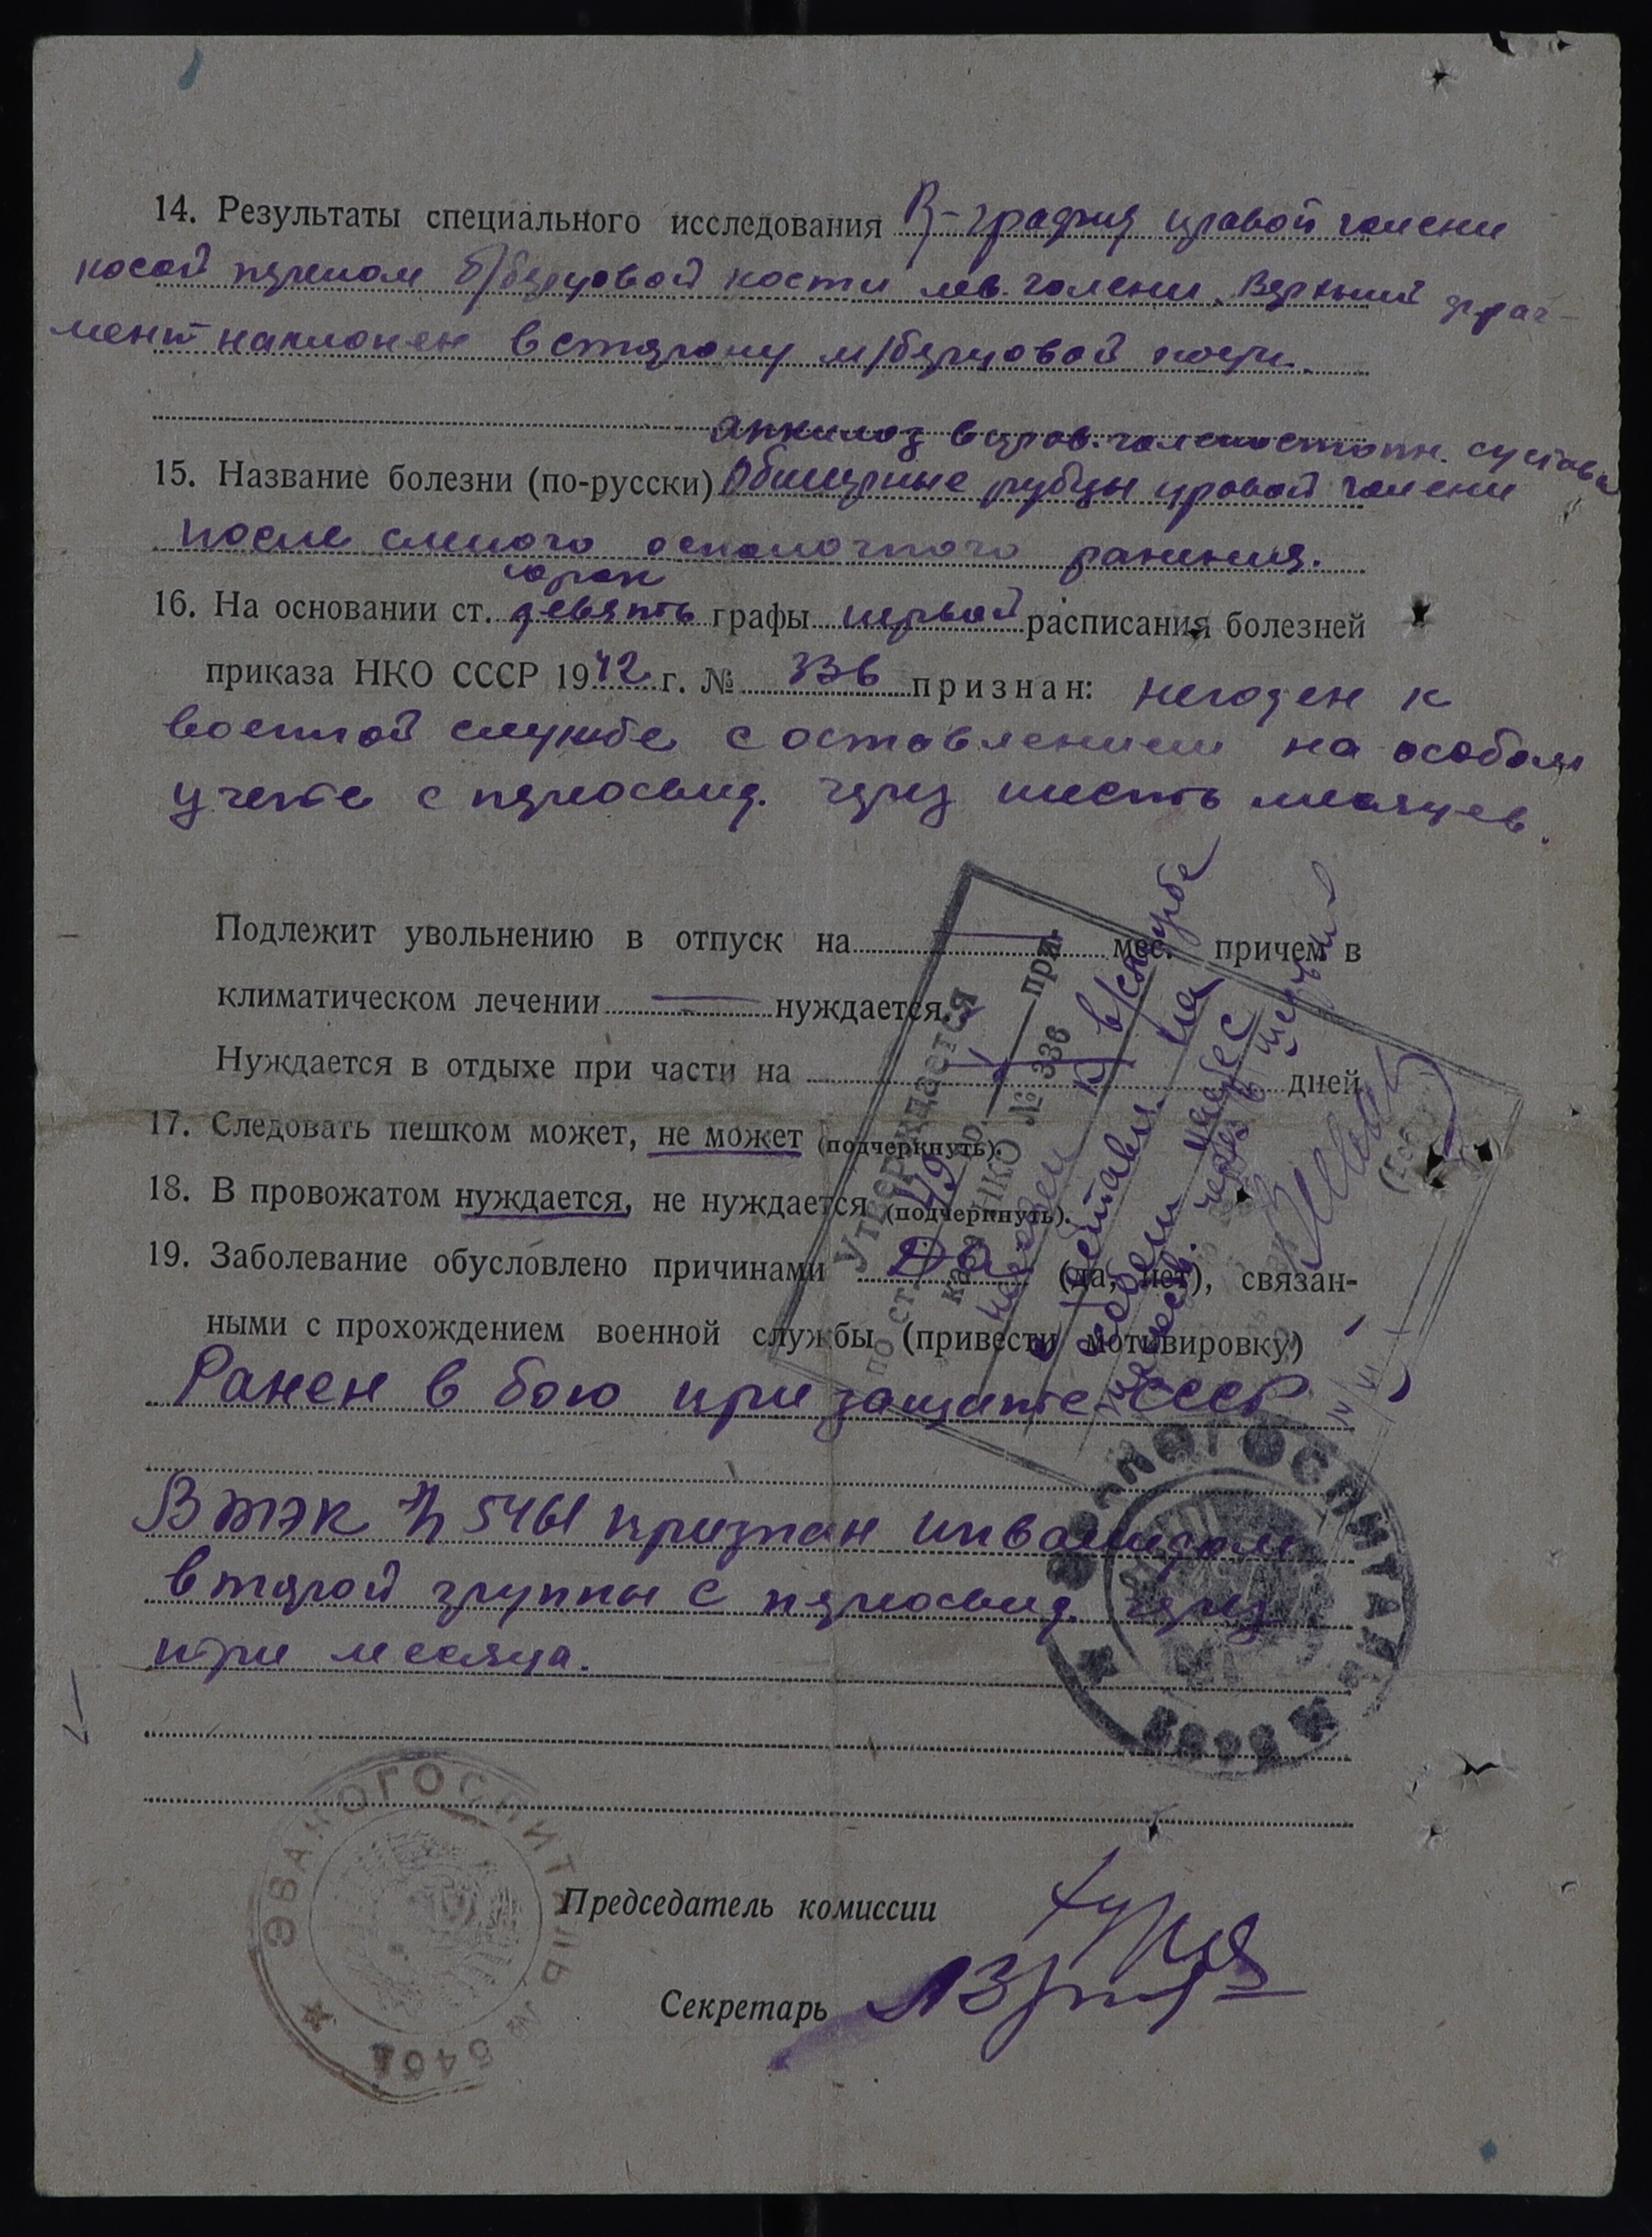 14. Результаты специального исследования R-графия правой голени
косой перелом б/берцовой кости лев. голени. Верхний фраг-
мент наклонен в сторону м/берцовой кости.
Анкилоз в прав. голеностопн. сустава
15. Название болезни (по-русски) Обширные рубцы правой голени
после слепого осколочного ранения.
сорок
16. На основании ст. девять графы первой расписания болезней
приказа НКО СССР 1942 г. № 336 признан: негоден к
военной службе с оставлением на особом
учете с переосвид. через шесть месяцев.
Подлежит увольнению в отпуск на — мес. причем в
климатическом лечении — нуждается.
Нуждается в отдыхе при части на — дней
17. Следовать пешком может, не может (подчеркнуть).
18. В провожатом нуждается, не нуждается (подчеркнуть).
19. Заболевание обусловлено причинами Да (да, нет), связан-
ными с прохождением военной службы (привести мотивировку)
Ранен в бою при защите СССР
ВТЭК № 5461 признан инвалидом
второй группы с переосвид. через
три месяца.
Председатель комиссии
Секретарь
Утверждается
по ст. 49 гр. I при-
каза НКО № 336
негоден к в/службе
с оставлен. на
особом учете с
через шесть
месяцев.
ЭВАКОГОСПИТАЛЬ № 5461